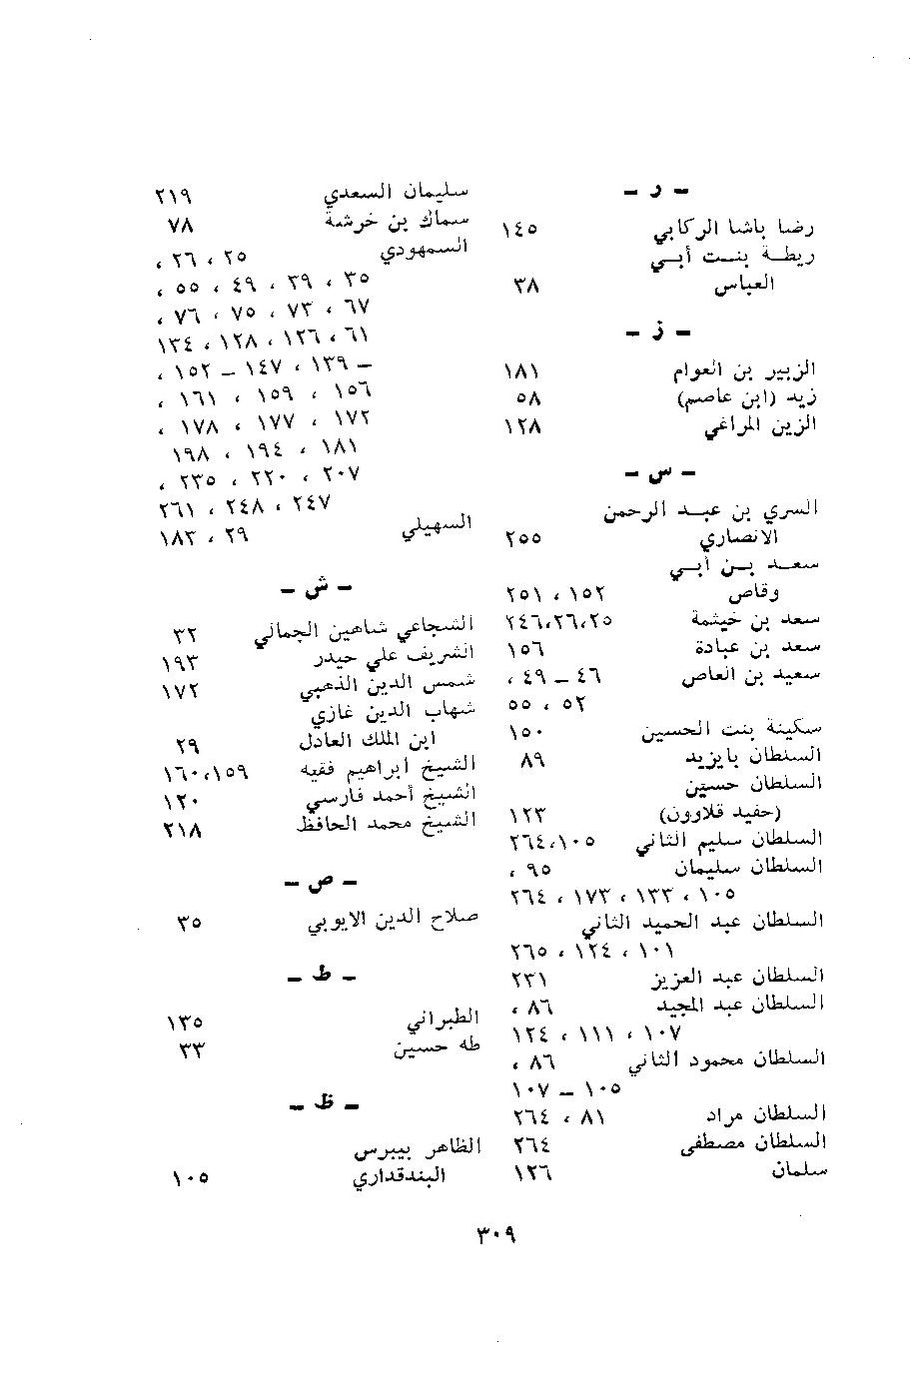 – ر –
رضا باشا الركابي ١٤٥
ريطـة بنـت أبـي
العباس ٣٨
– ز –
الزبير بن العوام ١٨١
زيد (ابن عاصم) ٥٨
الزين المراغي ١٢٨
– س –
السري بن عبـد الرحمن
الانصاري ٢٥٥
سعـد بـن أبـي
وقاص ١٥٢ ، ٢٥١
سعد بن خيثمة ٢٥،٢٦،٢٤٦
سعد بن عبادة ١٥٦
سعيد بن العاص ٤٦ – ٤٩ ،
٥٢ ، ٥٥
سكينة بنت الحسين ١٥٠
السلطان بايزيد ٨٩
السلطان حسين
(حفيد قلاوون) ١٢٣
السلطان سليم الثاني ١٠٥،٢٦٤
السلطان سليمان ٩٥ ،
١٠٥ ، ١٣٣ ، ١٧٣ ، ٢٦٤
السلطان عبد الحميد الثاني
١٠١ ، ١٢٤ ، ٢٦٥
السلطان عبد العزيز ٢٣١
السلطان عبد المجيد ٨٦ ،
١٠٧ ، ١١١ ، ١٢٤
السلطان محمود الثاني ٨٦ ،
١٠٥ – ١٠٧
السلطان مراد ٨١ ، ٢٦٤
السلطان مصطفى ٢٦٤
سلمان ١٢٦
سليمان السعدي ٢١٩
سماك بن خرشة ٧٨
السمهودي ٢٥ ، ٢٦ ،
٣٥ ، ٣٩ ، ٤٩ ، ٥٥ ،
٦٧ ، ٧٣ ، ٧٥ ، ٧٦ ،
٦١ ، ١٢٦ ، ١٢٨ ، ١٣٤
– ١٣٩ ، ١٤٧ – ١٥٢ ،
١٥٦ ، ١٥٩ ، ١٦١ ،
١٧٢ ، ١٧٧ ، ١٧٨ ،
١٨١ ، ١٩٤ ، ١٩٨
٢٠٧ ، ٢٢٠ ، ٢٣٥ ،
٢٤٧ ، ٢٤٨ ، ٢٦١
السهيلي ٢٩ ، ١٨٣
– ش –
الشجاعي شاهين الجمالي ٣٢
الشريف علي حيدر ١٩٣
شمس الدين الذهبي ١٧٢
شهاب الدين غازي
ابن الملك العادل ٢٩
الشيخ ابراهيم فقيه ١٥٩،١٦٠
الشيخ أحمد فارسي ١٢٠
الشيخ محمد الحافظ ٢١٨
– ص –
صلاح الدين الايوبي ٣٥
– ط –
الطبراني ١٣٥
طه حسين ٣٣
– ظ –
الظاهر بيبرس
البندقداري ١٠٥
٣٠٩